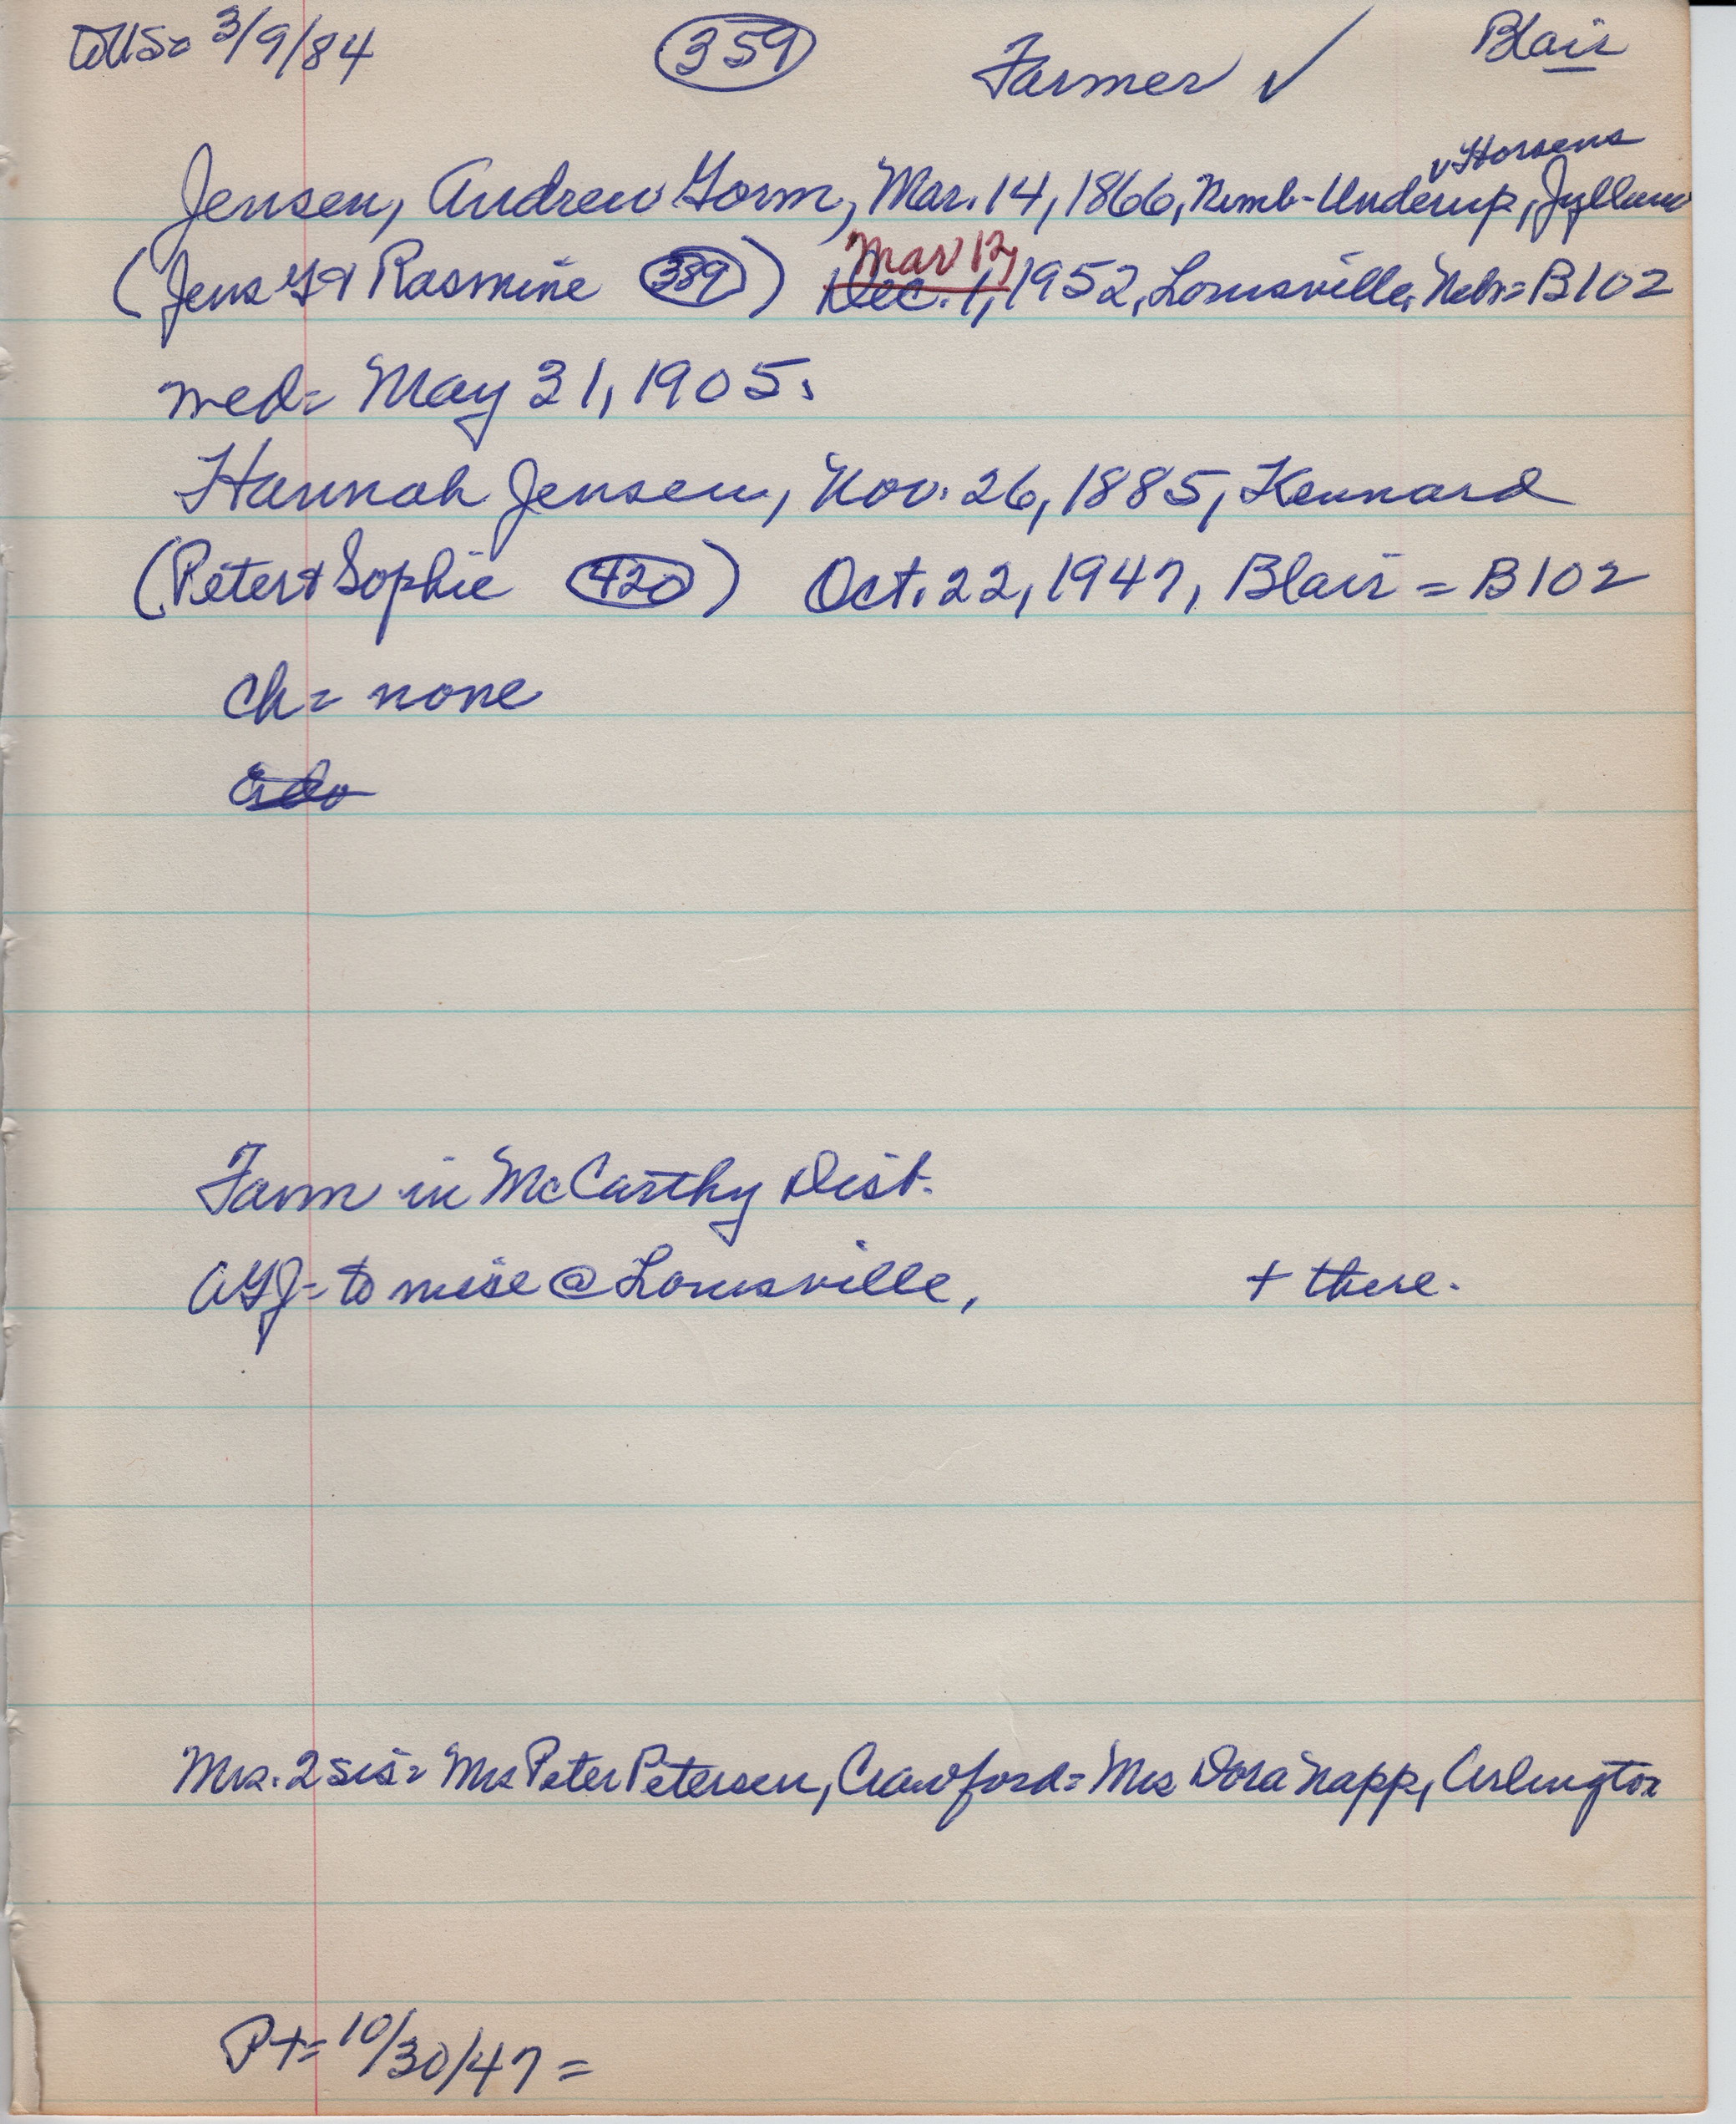 toUS= 3/9/84 359 Farmer ✓ Blair
v Horsens
Jensen, Andrew Gorm, Mar. 14, 1866, Nimb-Underup, Jylland
Mar 12,
(Jens G & Rasmine 389) Dec. 1, 1952, Louisville, Nebr= B102
wed= May 31, 1905.
Hannah Jensen, Nov. 26, 1885, Kennard
(Peter & Sophie 420) Oct. 22, 1947, Blair = B102
ch= none
Farm in McCarthy Dist.
AGJ= to mise @ Louisville, + there.
Mrs. 2 sis= Mrs Peter Petersen, Crawford= Mrs Dora Napp, Arlington
Pt= 10/30/47 =